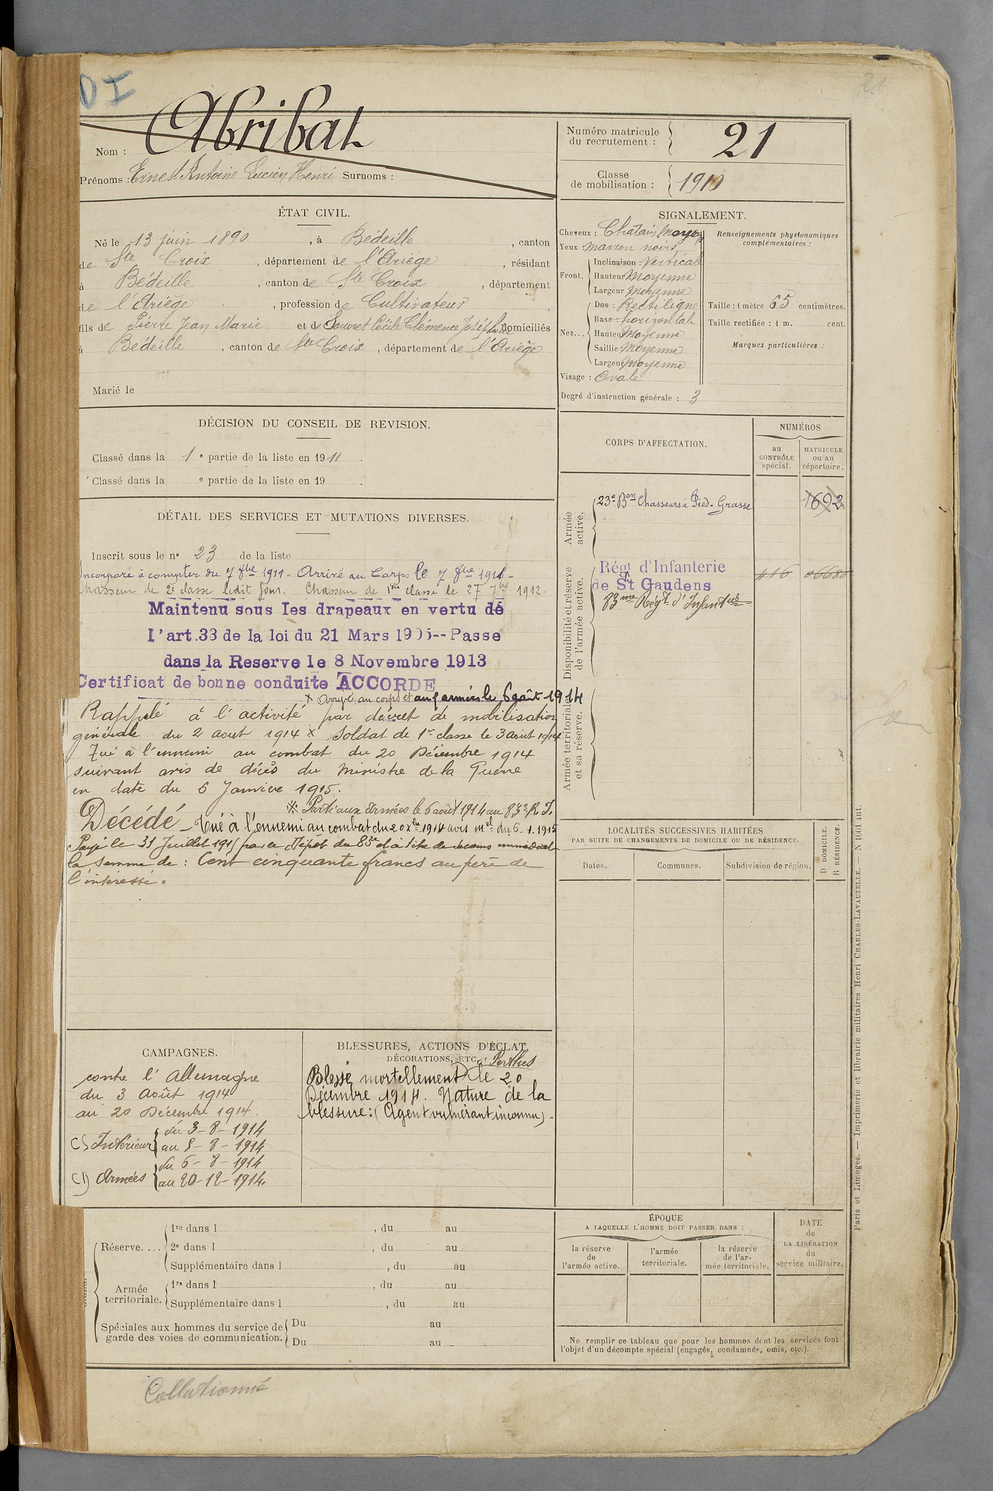 DI
21
Nom : Abribat
Prénoms : Ernest Antoine Lucien Henri Surnoms :
Numéro matricule du recrutement : 21
Classe de mobilisation : 1910
ÉTAT CIVIL.
Né le 13 juin 1890, à Bédeille, canton
de Ste Croix, département de l'Ariège, résidant
à Bédeille, canton de Ste Croix, département
de l'Ariège, profession de Cultivateur
fils de Pierre Jean Marie et de Souvret Cécile Clémence domiciliés
à Bédeille, canton de Ste Croix, département de l'Ariège
Marié le
SIGNALEMENT.
Cheveux : Chatain moyen
Yeux marron noirs
Front. Inclinaison : Vertical
Hauteur Moyenne
Largeur Moyenne
Nez... Dos : Rectiligne
Base : horizontale
Hauteur Moyenne
Saillie Moyenne
Largeur Moyenne
Visage : Ovale
Renseignements physionomiques complémentaires :
Taille : 1 mètre 65 centimètres.
Taille rectifiée : 1 m. cent.
Marques particulières :
Degré d'instruction générale : 3
DÉCISION DU CONSEIL DE REVISION.
Classé dans la 1e partie de la liste en 1911.
Classé dans la e partie de la liste en 19 .
DÉTAIL DES SERVICES ET MUTATIONS DIVERSES.
Inscrit sous le no 23 de la liste
Incorporé à compter du 7 8bre 1911. Arrivé au Corps le 7 8bre 1911.-
Chasseur de 2e classe ledit jour. Chasseur de 1re classe le 27 7bre 1912.
Maintenu sous les drapeaux en vertu de
l'art.33 de la loi du 21 Mars 1905--Passe
dans la Reserve le 8 Novembre 1913
Certificat de bonne conduite ACCORDE
x Arrivé au corps et aux armées le 6 août 1914
Rappelé à l'activité par décret de mobilisation
générale du 2 aout 1914 x Soldat de 1re classe le 3 août 1914
Tué à l'ennemi au combat du 20 Décembre 1914
suivant avis de décès du Ministre de la Guerre
en date du 6 Janvier 1915.
Parti aux armées le 6 août 1914 au 83e R.I.
Décédé - Tué à l'ennemi au combat du 20 Xbre 1914 avis mel du 6-1-1915
Payé le 31 Juillet 1915 par le Dépôt du 83e à titre de secours immédiat
la somme de : Cent cinquante francs au père de
l'intéressé.
CORPS D'AFFECTATION.
NUMÉROS
au CONTRÔLE spécial.
MATRICULE ou au répertoire.
Armée active.
23e Bon Chasseurs à Pied. Grasse
1692
Disponibilité et réserve de l'armée active.
Régt d'Infanterie
de St Gaudens
416
83me Régt d'Infanterie
Armée territoriale et sa réserve.
LOCALITÉS SUCCESSIVES HABITÉES
PAR SUITE DE CHANGEMENTS DE DOMICILE OU DE RÉSIDENCE.
Dates.
Communes.
Subdivision de région.
D DOMICILE.
R RÉSIDENCE.
CAMPAGNES.
contre l'Allemagne
du 3 Août 1914
au 20 Décembre 1914.
CS Intérieur du 3-8-1914
au 5-8-1914
CD Armées du 6-8-1914
au 20-12-1914
BLESSURES, ACTIONS D'ÉCLAT,
DÉCORATIONS, ETC.
à Perthes
Blessé mortellement le 20
Décembre 1914. Nature de la
blessure : (Agent vulnérant inconnu).
Réserve.... 1re dans l , du au
2e dans l , du au
Supplémentaire dans l , du au
Armée territoriale. 1re dans l , du au
Supplémentaire dans l , du au
Spéciales aux hommes du service de garde des voies de communication. Du au
Du au
ÉPOQUE
A LAQUELLE L'HOMME DOIT PASSER DANS :
la réserve de l'armée active.
l'armée territoriale.
la réserve de l'armée territoriale.
DATE de LA LIBÉRATION du service militaire.
Ne remplir ce tableau que pour les hommes dont les services font
l'objet d'un décompte spécial (engagés, condamnés, omis, etc.).
Paris et Limoges. — Imprimerie et librairie militaires Henri CHARLES-LAVAUZELLE. —
Collationné